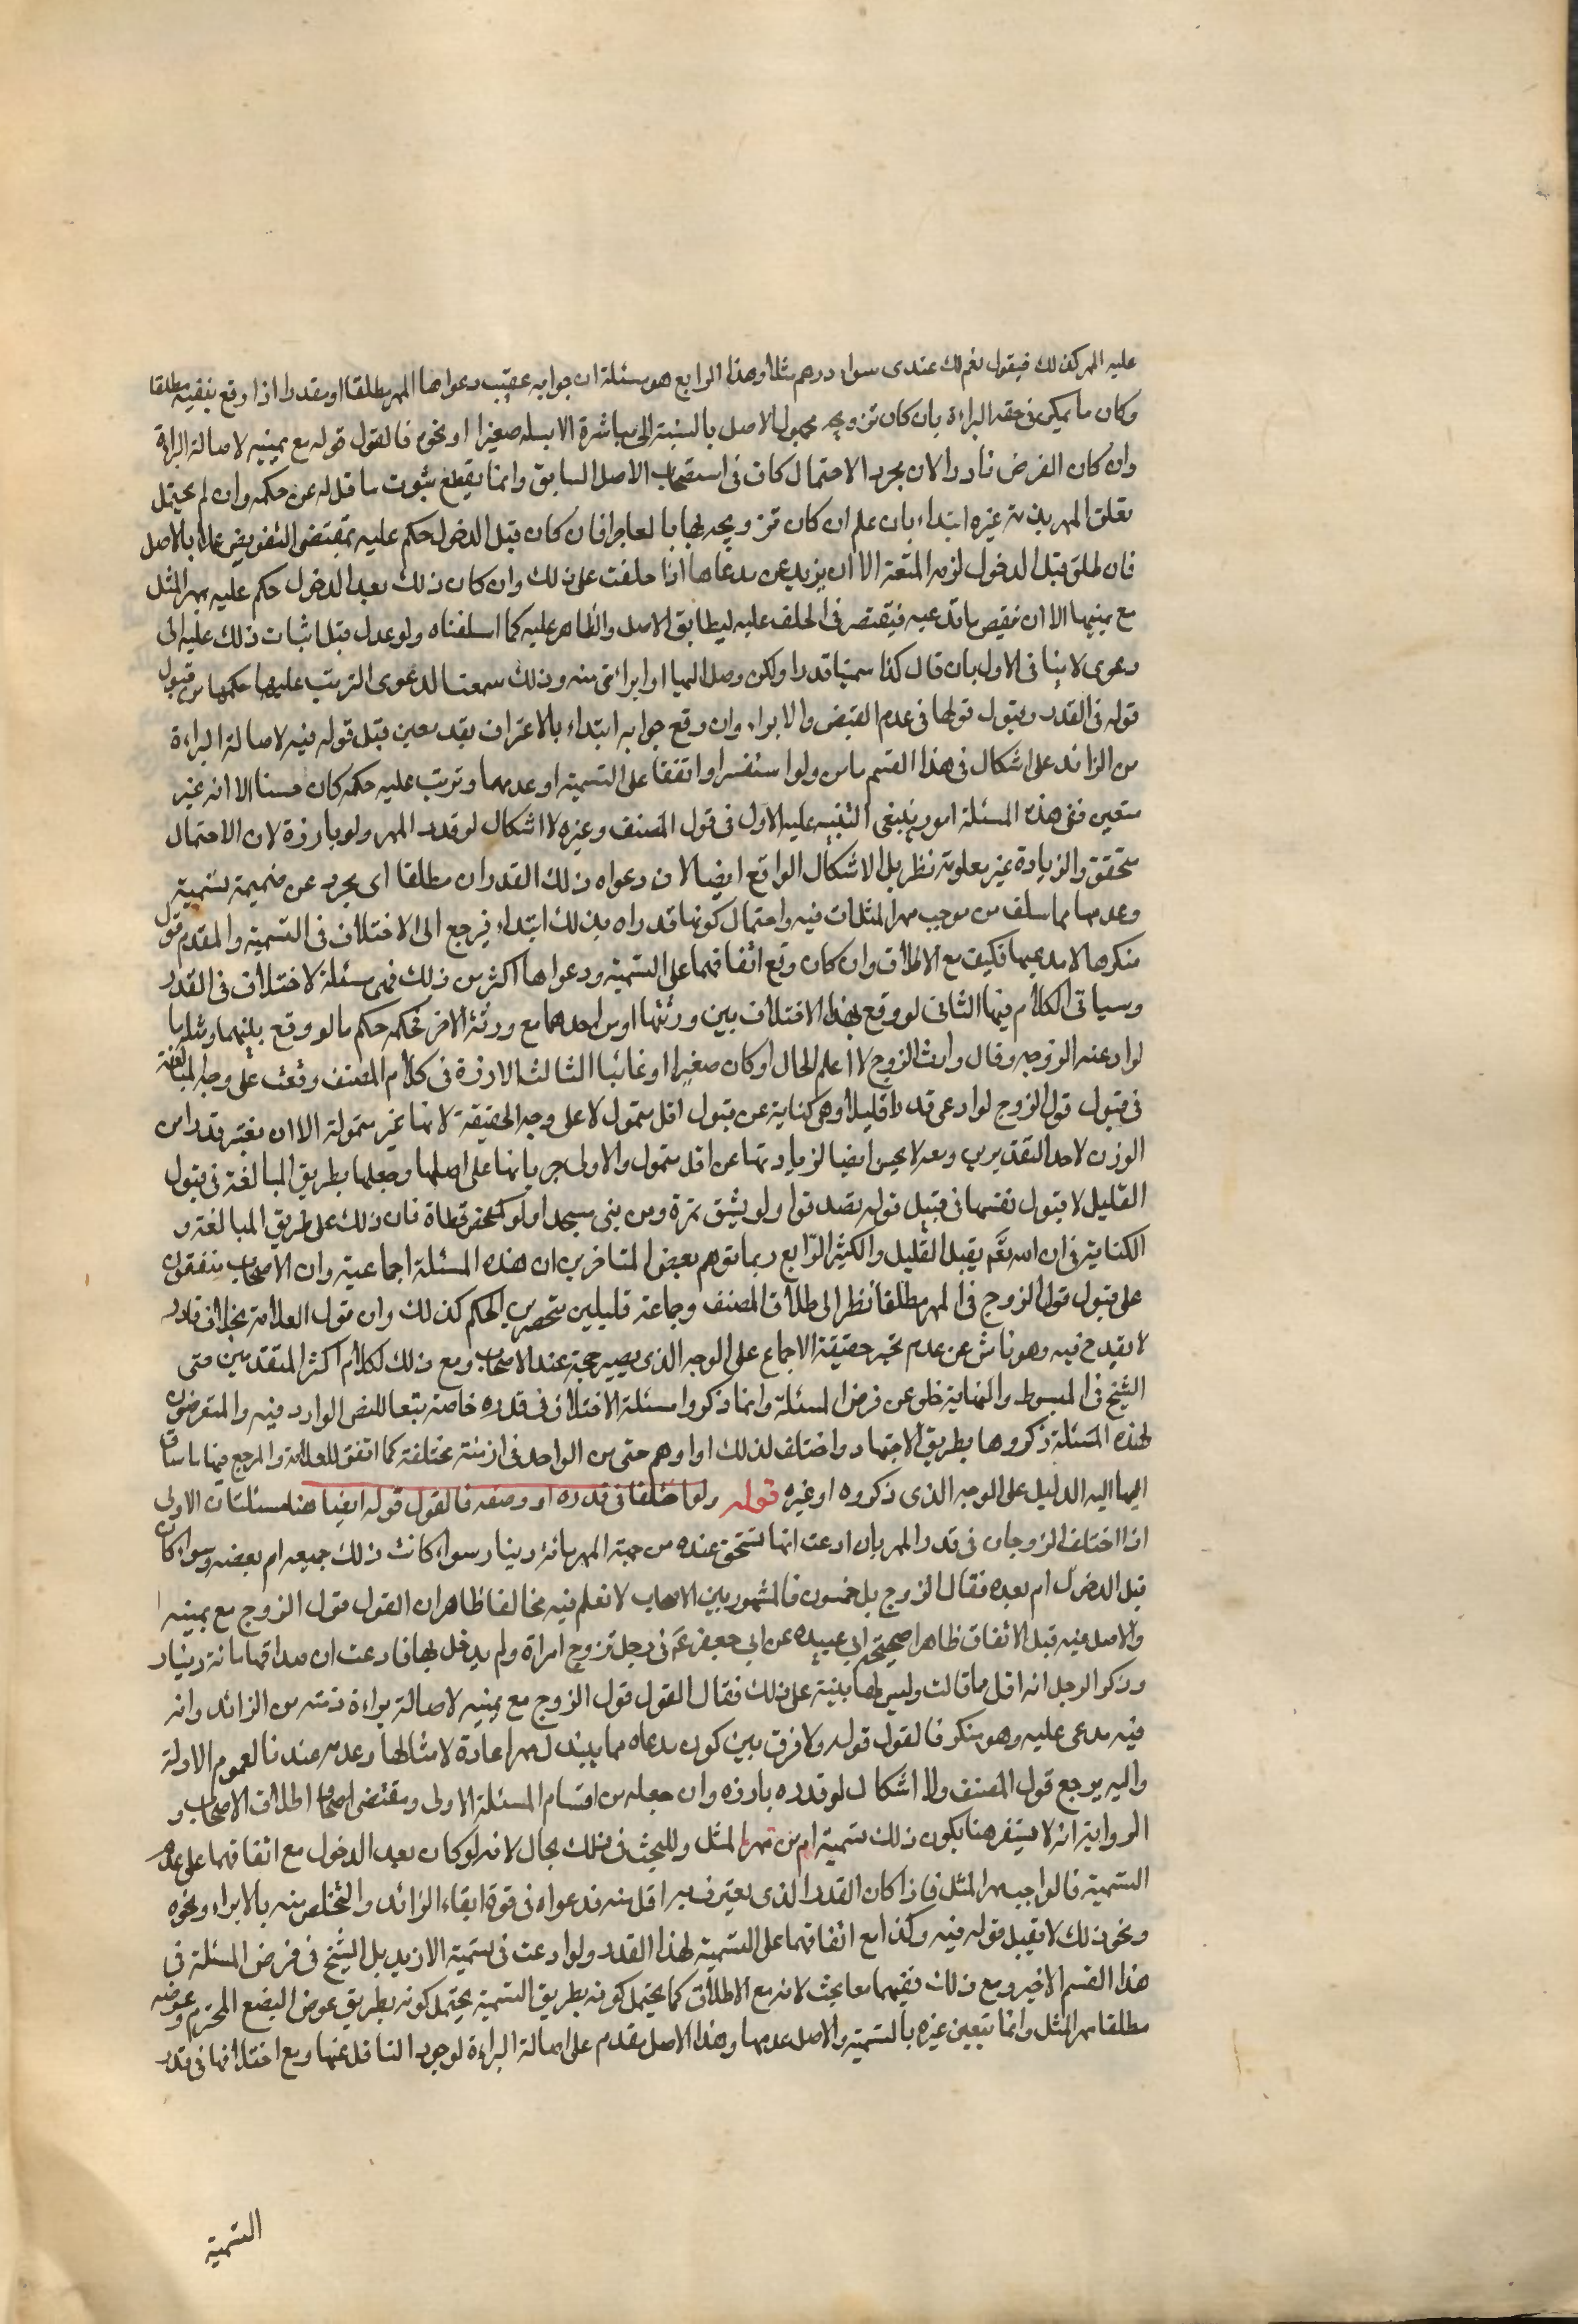 عليه المهر كذلك فيقول نعم لك عندى سواد درهم مثلا وهذا الرابع هو مسئلة ان جوابه عقيب دعواها المهر مطلقا او مقدرا اذا وقع بنفيه مطلقا
وكان ما يمكن فى حقه البراءة بان كان تزويجه مجهول الاصل بالنسبة الى مباشرة الابيله صغيرا او نحوه فالقول قوله مع يمينه لاصالة البراءة
وان كان الفرض نادرا لان مجرد الاحتمال كاف فى استصحاب الاصل السابق وانما يقطع بثبوت ناقل له عن حكمه وان لم يحتمل
تعلق المهر بذمة غيره ابتداء بان علم ان كان تزويجه لها بالغا حرا فان كان قبل الدخول حكم عليه بمقتضى التفويض عملا بالاصل
فان طلق قبل الدخول لزمه المتعة الا ان يزيد عن مدعاها اذا حلفت على ذلك وان كان ذلك بعد الدخول حكم عليه بمهر المثل
مع يمينها الا ان نقيص ما تدعيه فيقتصر فى الحلف عليه ليطابق الاصل والظاهر عليه كما اسلفناه ولو عدل قبل اثبات ذلك عليه الى
دعوى لا ينافى الاول بان قال كنا سمينا قدرا ولكن وصل اليها او ابرأتنى منه وذلك سمعنا الدعوى الترتب عليها حكمها من قبول
قوله فى القدر وقبول قولها فى عدم القبض والابراء وان وقع جوابه ابتداء بالاعتراف بقدر معين قبل قوله فيه لاصالة البراءة
من الزائد على اشكال فى هذا القسم مامن ولو استفسر او اتفقا على التسمية او عدمها وترتب عليه حكمه كان حسنا الا انه غير
متعين ففى هذه المسئلة امور ينبغى التنبيه عليه الاول فى قول المصنف وغيره لا اشكال لو قدر المهر ولو بارزة لان الاحتمال
متحقق والزيادة غير معلومة نظر بل الاشكال الواقع ايضا لان دعواه ذلك القدر ان مطلقا اى مجرد عن ضميمة تسمية
وعدمها مما سلف من موجب مهر المثل ات فيه واحتمال كونها قدراه بذلك ابتداء فيرجع الى الاختلاف فى التسمية والمقدم قول
منكرها لا مدعيها فكيف مع الاطلاق وان كان وقع اتفاقهما على التسمية ودعواها اكثر من ذلك فهى مسئلة الاختلاف فى القدر
وسياتى الكلام فيها الثانى لو وقع هذا الاختلاف بين ورثتهما او بين احدهما مع ورثة الاخر فحكمه حكم ما لو وقع بينهما ومثله ما
لو ادعته الزوجة وقال وارث الزوج لا اعلم الحال او كان صغيرا او غائبا الثالث الارزة فى كلام المصنف وقعت على وجه المبالغة
فى قبول قول الزوج لو ادعى قدرا قليلا وهى كناية عن قبول اقل متمول لا على وجه الحقيقة لانها غير متمولة الا ان نعتبر قدرا من
الوزن لاحد النقديرين ومعه لا يحسن ايضا لزيادتها عن اقل متمول والاولى جريانها على اصلها وجعلها بطريق المبالغة فى قبول
القليل لا قبول نفسها فى قبيل قوله تصدقوا ولو بشق تمرة ومن بنى مسجدا ولو كمفحر قطاة فان ذلك على طريق المبالغة و
الكناية فى ان الله تعم يقبل القليل والكثير الرابع ربما توهم بعض المتاخرين ان هذه المسئلة اجماعية وان الاصحاب متفقون
على قبول قول الزوج فى المهر مطلقا نظرا الى اطلاق المصنف وجماعة قليلين متحصرين الحكم كذلك وان قول العلامة بخلاف نادر
لا يقدح فيه وهو ناش عن عدم تحرير حقيقة الاجماع على الوجه الذى يصير حجة عند الاصحاب ومع ذلك فكلام اكثر المتقدمين حتى
الشيخ فى المبسوط والنهاية خلى عن فرض المسئلة وانما ذكروا مسئلة الاختلاف فى قدره خاصة تبعا للنص الوارد فيه والمتعرضون
لهذه المسئلة ذكروها بطريق الاجتهاد واختلف لذلك اراؤهم حتى من الواحد فى ازمنة مختلفة كما اتفق للعلامة والمرجع فيها ما ساق
اليها اليه الدليل على الوجه الذى ذكروه او غيره قوله ولو اختلفا فى قدره او وصفه فالقول قوله ايضا هنا مسئلتان الاولى
اذا اختلف الزوجان فى قدر المهر بان ادعت انها تستحق عنده من جهة المهر مائة دينار سواء كانت ذلك جميعه ام بعضه وسواء كان
قبل الدخول ام بعده فقال الزوج بل خمسون فالمشهور بين الاصحاب لا نعلم فيه مخالفا ظاهرا ان القول قول الزوج مع يمينه
والاصل فيه قبل الاتفاق ظاهرا صحيحة ابى عبيده عن ابى جعفر عم فى رجل تزوج امراة ولم يدخل بها فادعت ان صداقها مائة دينار
وذكر الرجل انه اقل مما قالت وليس لها بينة على ذلك فقال القول قول الزوج مع يمينه لاصالة براءة ذمته من الزائد وانه
فيه مدعى عليه وهو منكر فالقول قوله ولا فرق بين كون مدعاه مما يبذل مهرا عادة لامثالها وعدمه عندنا لعموم الادلة
واليه يرجع قول المصنف ولا اشكال لو قدره بارزه وان جعله من اقسام المسئلة الاولى ومقتضى اطلاق الاصحاب و
الرواية انه لا يستفسر هنا بكون ذلك تسمية ام من مهر المثل وللبحث فى ذلك مجال لانه لو كان بعد الدخول مع اتفاقهما على عدم
التسمية فالواجب مهر المثل فاذا كان القدر الذى يعترف به اقل منه فدعواه فى قوة ايفاء الزائد والتخلص منه بالابراء ونحوه
ونحو ذلك لا يقبل قوله فيه وكذا مع اتفاقهما على التسمية لهذا القدر ولو ادعت فى تسمية الازيد بل الشيخ فى فرض المسئلة فى
هذا القسم الاخير ومع ذلك ففيهما معا بحث لانه مع الاطلاق كما يحتمل كونه بطريق التسمية يحتمل كونه بطريق عوض البضع المحترم وعوضه
مطلقا مهر المثل وانما يتعين غيره بالتسمية والاصل عدمها وهذا الاصل مقدم على اصالة البراءة لوجود الناقل عنها ومع اختلافهما فى قدر
التسمية